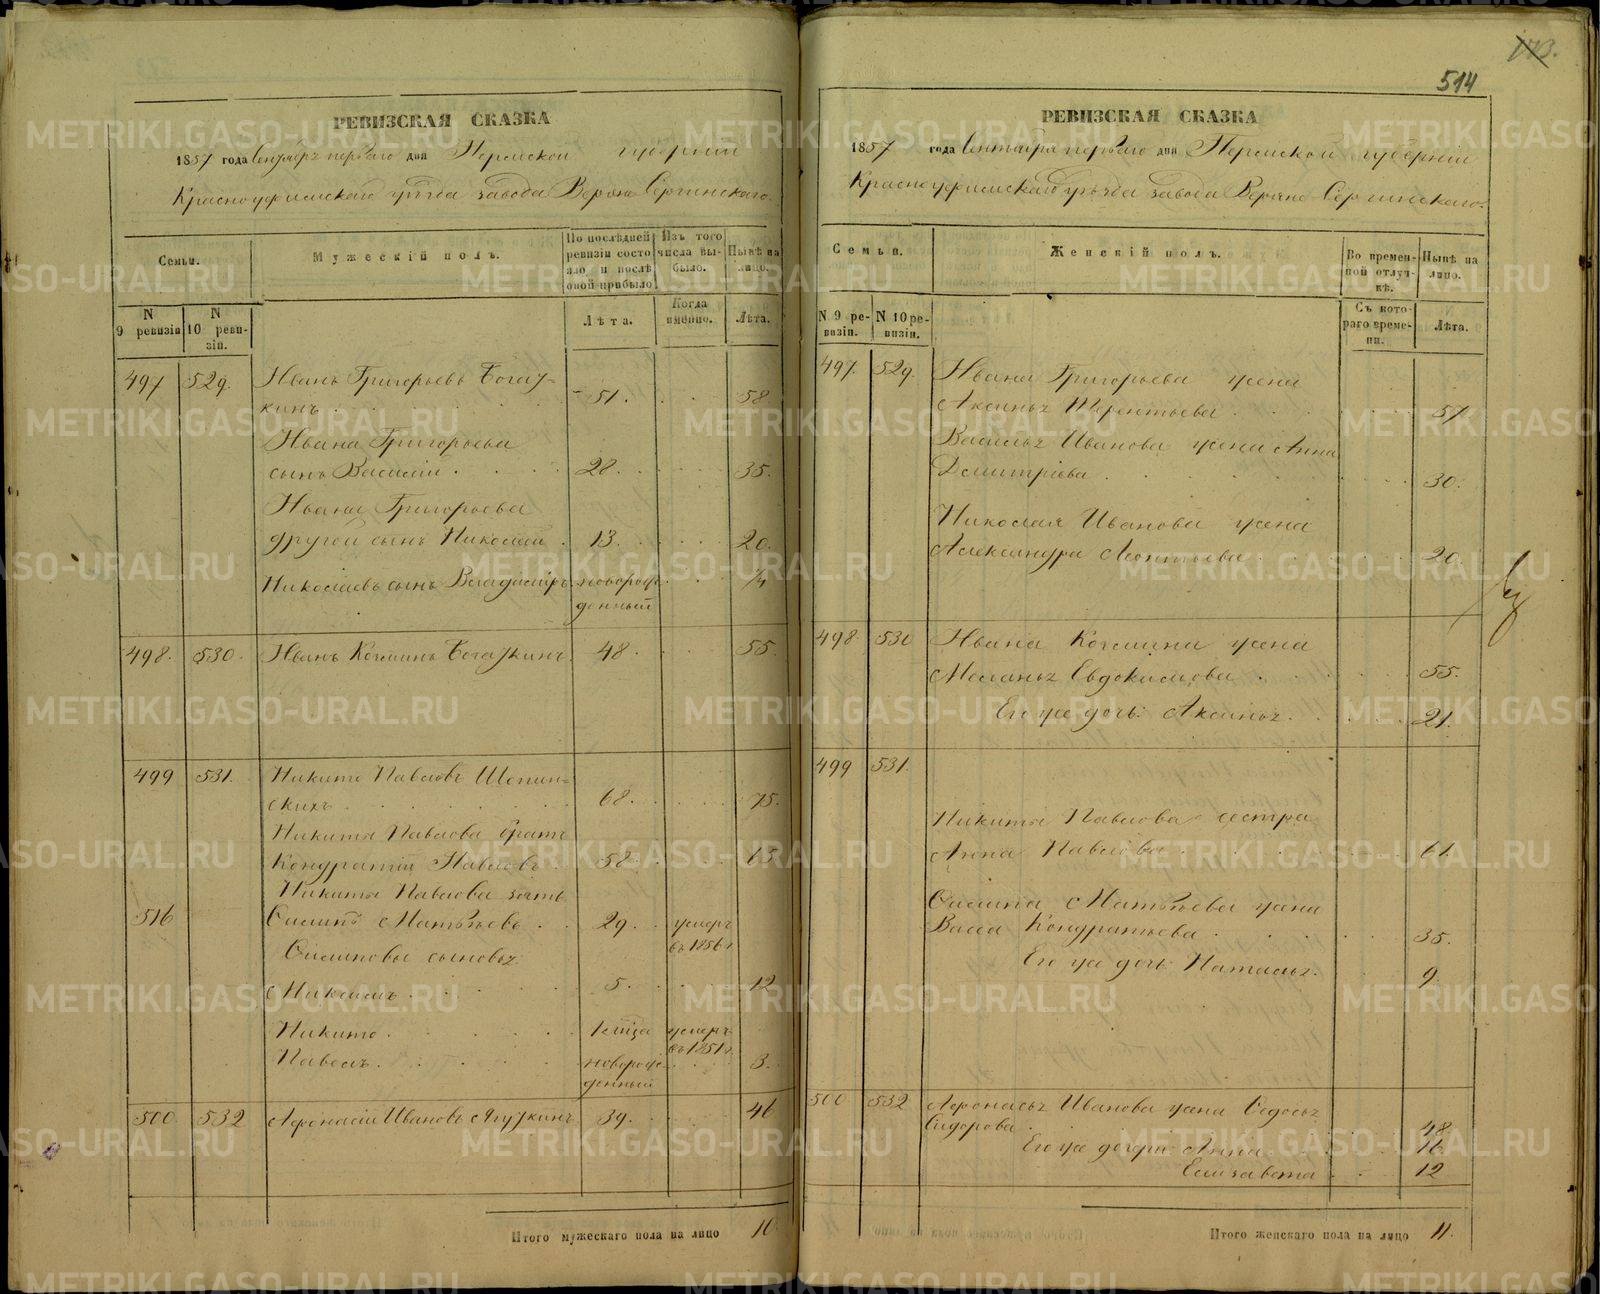 173.
514
РЕВИЗСКАЯ СКАЗКА
1857 года Сентября первого дня Пермской губернии
Красноуфимскаго уѣзда завода Верхне Сергинскаго.
Семьи.
Мужескій полъ.
По послѣдней ревизіи состояло и послѣ оной прибыло
Изъ того числа выбыло.
Нынѣ на лицо.
N 9 ревизіи
N 10 ревизіи.
Лѣта.
Когда именно.
Лѣта.
497 529. Иванъ Григорьевъ
кинъ 51. 58
Ивана Григорьева
сынъ Василій 28. 35.
Ивана Григорьева
другой сынъ Николай 13. 20.
Николаевъ сынъ Владиміръ новорож-
денный 1/4
498. 530. Иванъ Козминъ 48. 55.
499 531. Никита Павловъ Шепин-
скихъ 68. 75.
Никиты Павлова братъ
Кондратій Павловъ 58. 65
Никиты Павлова зять
516 Осипъ Матвѣевъ 29. умеръ
въ 1856 г.
Осиповы сыновья
Максимъ 5. 12
Никита умеръ
въ 1851 г.
Павелъ новорож-
денный 3.
500 532 Афонасій Ивановъ Ягушкинъ 39. 46
Итого мужескаго пола на лицо 10.
РЕВИЗСКАЯ СКАЗКА
1857 года Сентября первого дня Пермской губерніи
Красноуфимскаго уѣзда завода Верхне Сергинскаго.
Семьи.
Женскій полъ.
Во временной отлучкѣ.
Нынѣ на лицо.
N 9 ревизіи.
N 10 ревизіи.
Съ котораго времени.
Лѣта.
497. 529. Ивана Григорьева жена
Аксинья Терентьева 57.
Василья Иванова жена Анна
Дмитріева 30.
Николая Иванова жена
Александра Леонтьева 20.
498 530 Ивана Козмина жена
Меланья Евдокимова 55.
Его же дочь Аксинья 21.
499 531.
Никиты Павлова сестра
Анна Павлова 61.
Осипа Матвѣева жена
Васса Кондратьева 35.
Его же дочь Наталья. 9.
500 532 Афонасья Иванова жена Федосья
Сидорова 48
Его же дочери Анна 16
Елизавета 12
Итого женскаго пола на лицо 11.
METRIKI.GASO-URAL.RU